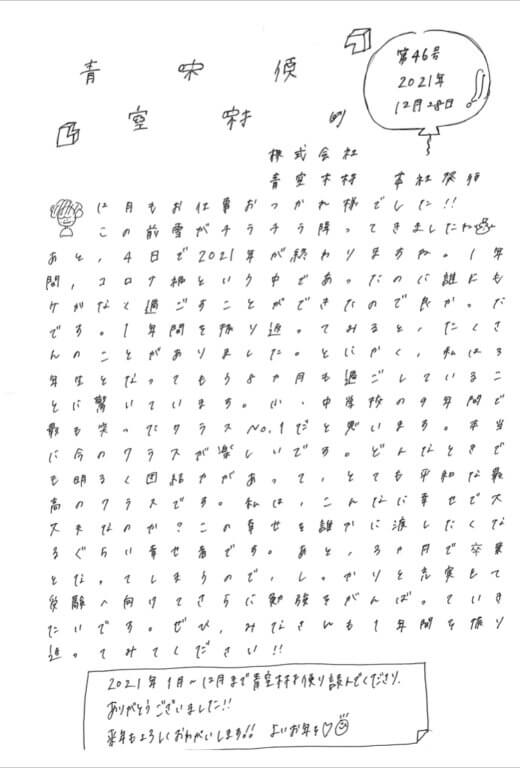 第46号
2021年
12月28日
青空便
空村的
株式会社
青空木村 本社
12月もお仕事おつかれ様でした!!
この前雪がチラチラ降ってきましたね
あと、4日で2021年が終わりますね。1年
間、コロナ禍という中であったのに誰にも
ケガなく過ごすことができたので良かった
です。1年間を振り返ってみると、たくさ
んのことがありました。とにかく、私は3
年生となってもう8か月も過ごしているこ
とに驚いています。小、中学校の9年間で
最も笑ったクラスNo.1だと思います。本当
に今のクラスが楽しいです。どんなときで
も明るく団結力があって、とても平和な最
高のクラスです。私は、こんなに幸せで大
丈夫なのか?この幸せを誰かに渡したくな
るぐらい幸せ者です。あと、3か月で卒業
となってしまうので、しっかりと充実して
受験へ向けてさらに勉強をがんばっていき
たいです。ぜひ、みなさんも1年間を振り
返ってみてください!!
2021年1月〜12月まで青空木村便り読んでくださり、
ありがとうございました!!
来年もよろしくおねがいします!! よいお年を♡